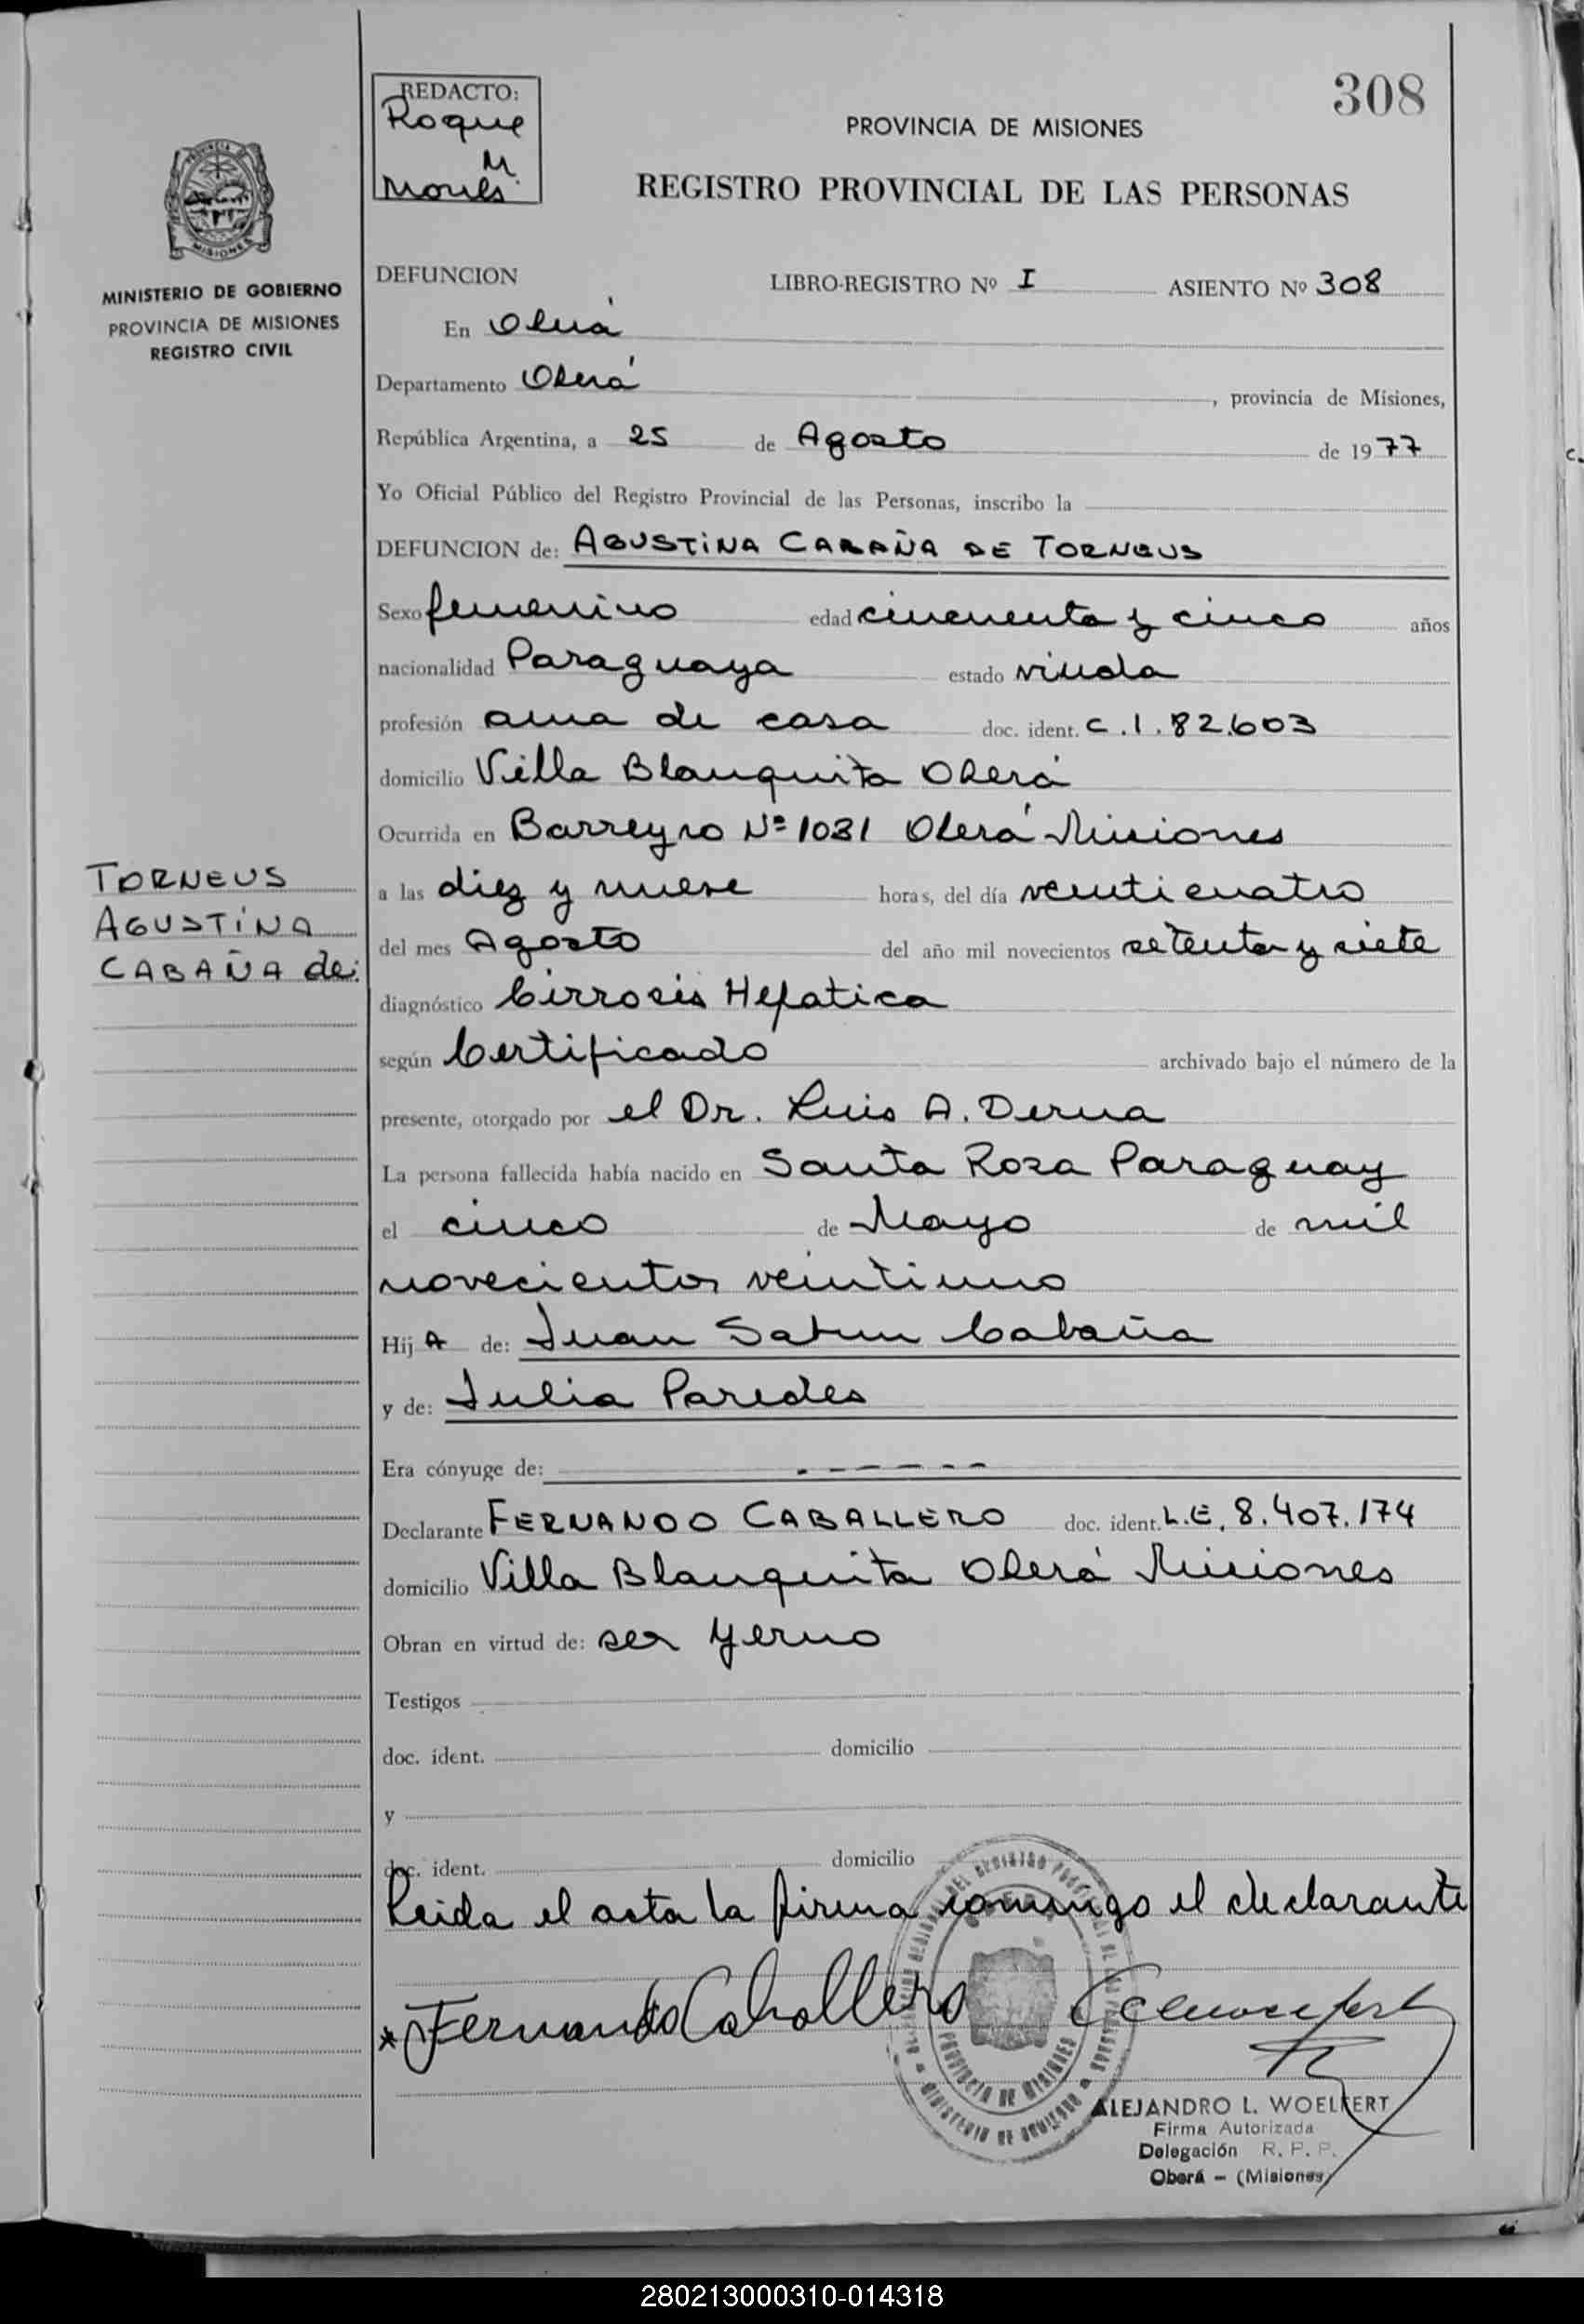 308
REDACTO:
Roque
M.
PROVINCIA DE MISIONES
REGISTRO PROVINCIAL DE LAS PERSONAS
PROVINCIA DE
MISIONES
MINISTERIO DE GOBIERNO
PROVINCIA DE MISIONES
REGISTRO CIVIL
DEFUNCION LIBRO-REGISTRO Nº I ASIENTO Nº 308
En Oberá
Departamento Oberá, provincia de Misiones,
República Argentina, a 25 de Agosto de 1977
Yo Oficial Público del Registro Provincial de las Personas, inscribo la
DEFUNCION de: AGUSTINA CABAÑA DE TORNEUS
Sexo femenino edad cincuenta y cinco años
nacionalidad Paraguaya estado viuda
profesión ama de casa doc. ident. C.I. 82.603
domicilio Villa Blanquita Oberá
Ocurrida en Barreyro Nº 1031 Oberá Misiones
TORNEUS
AGUSTINA
CABAÑA de:
a las diez y nueve horas, del día veinticuatro
del mes Agosto del año mil novecientos setenta y siete
diagnóstico Cirrosis Hepatica
según Certificado archivado bajo el número de la
presente, otorgado por el Dr. Luis A. Derna
La persona fallecida había nacido en Santa Rosa Paraguay
el cinco de Mayo de mil
novecientos veintiuno
Hija de: Juan Cabaña
y de: Julia Paredes
Era cónyuge de: - - - - - -
Declarante FERNANDO CABALLERO doc. ident. L.E. 8.407.174
domicilio Villa Blanquita Oberá Misiones
Obran en virtud de: ser yerno
Testigos
doc. ident. domicilio
y
doc. ident. domicilio
Leida el acta la firma conmigo el declarante
* Fernando Caballero
PROVINCIA DE MISIONES
MINISTERIO DE GOBIERNO
ALEJANDRO L. WOELFERT
Firma Autorizada
Delegación R. P. P.
Oberá - (Misiones)
280213000310-014318